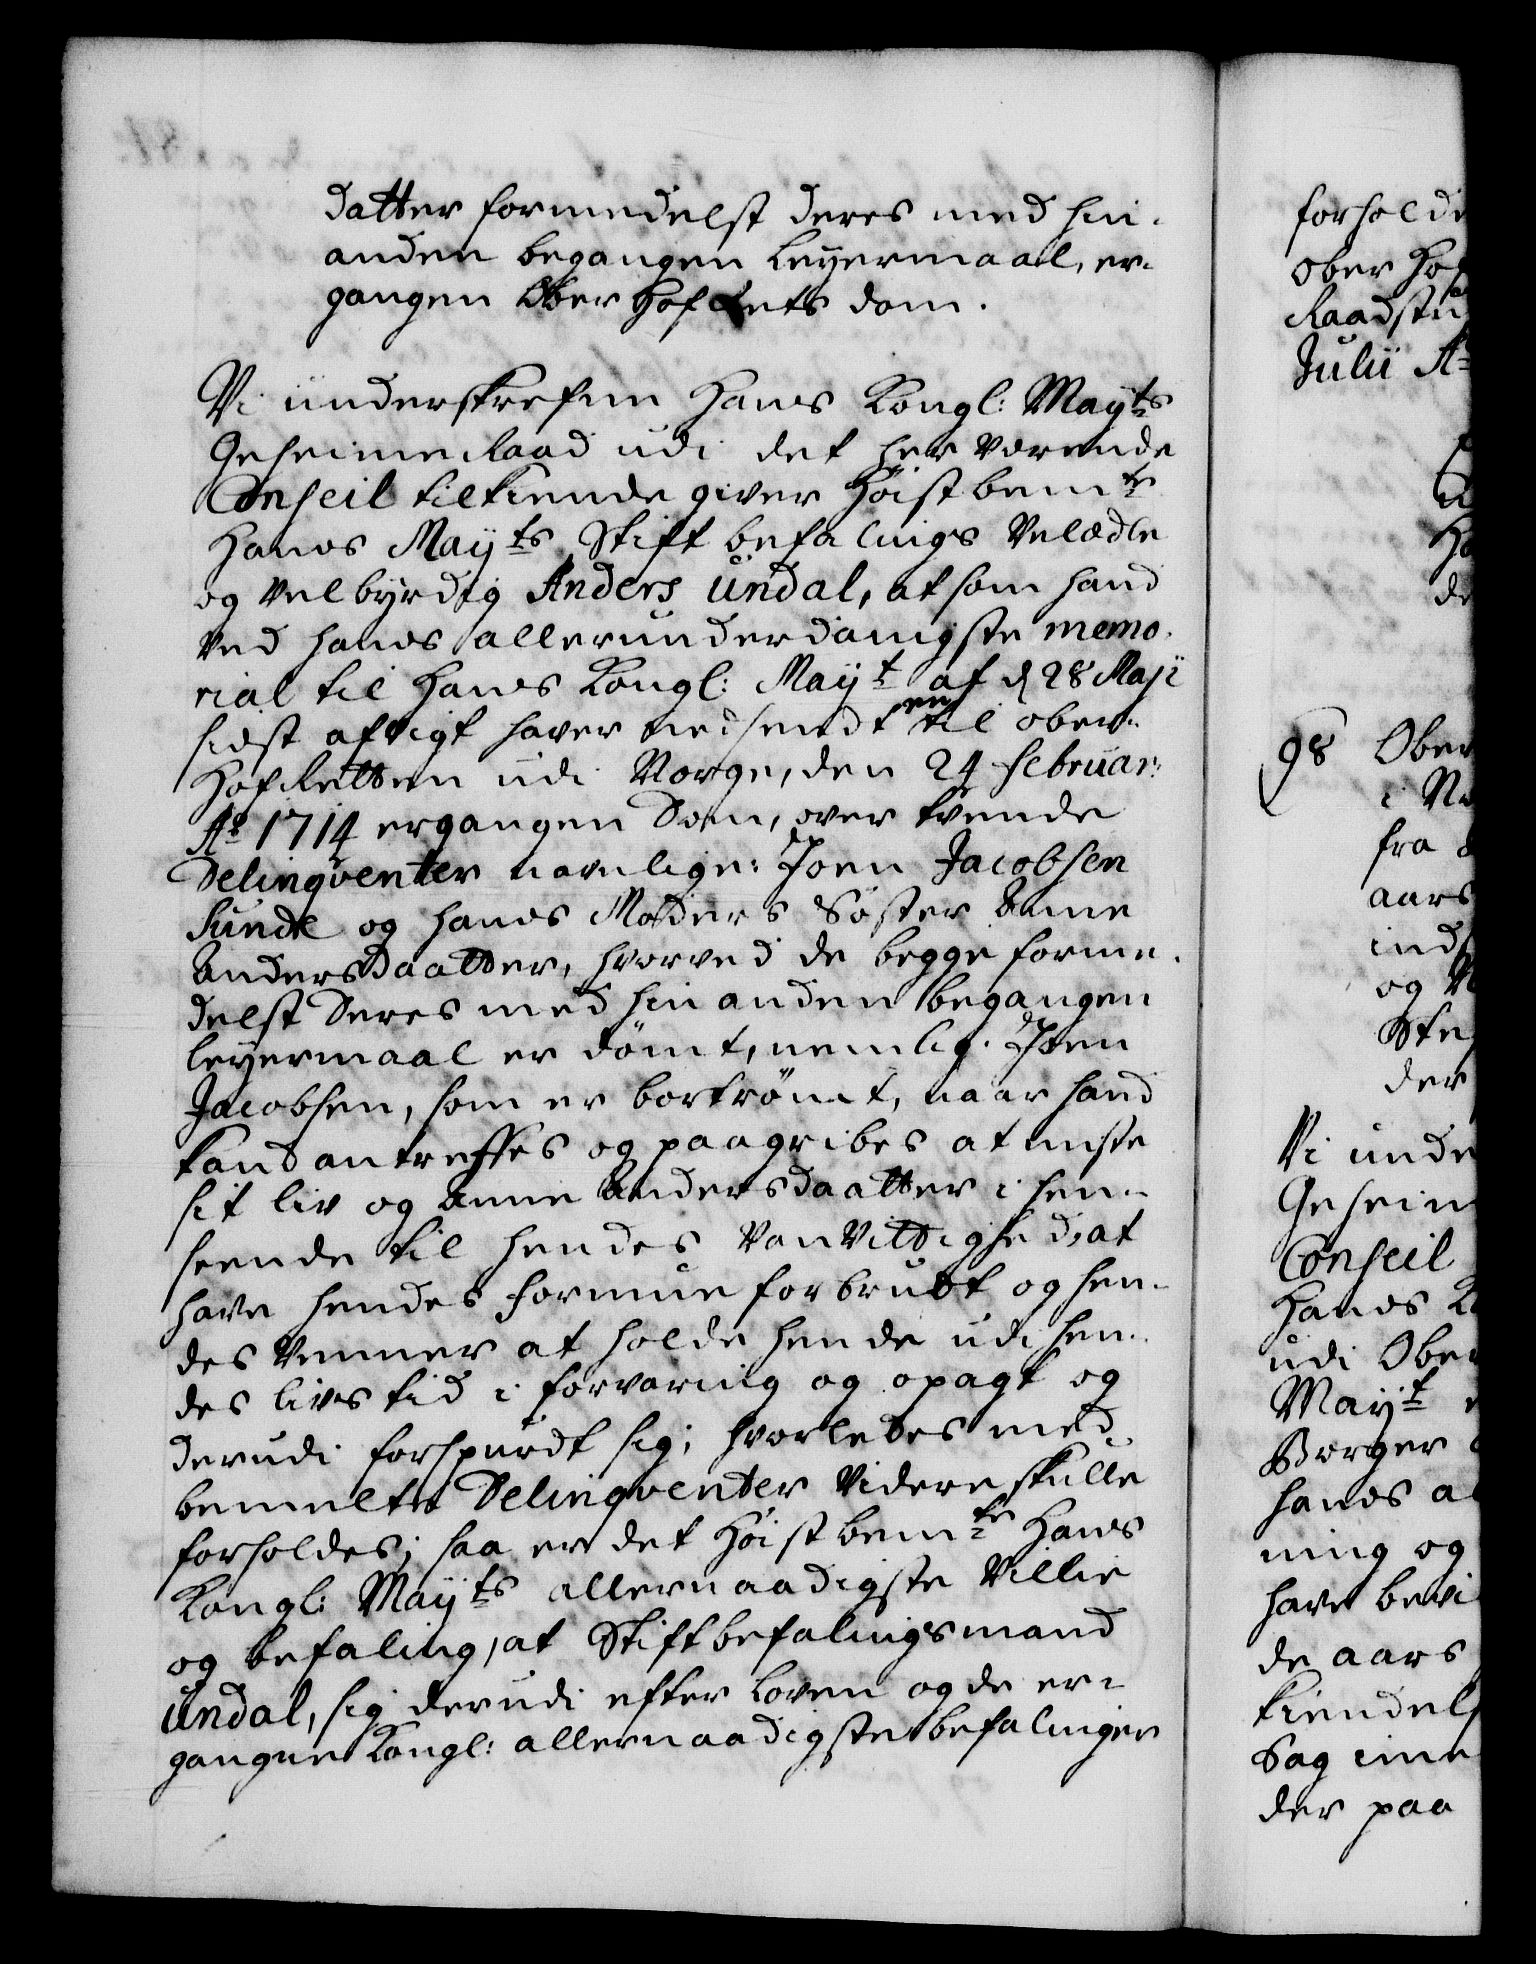 datter formedelst deres med hin-
anden begangen leyermaal, er-
gangen Ober Hof Rets dom.
Vi underskrefne Hans Kongl: Mayts
Geheime Raad udi det her værende
Conseil tilkiende giver Høistbemte
Hans Mayts Stift befalings Velædle
og Velbyrdig Anders Undal, at som hand
ved hans allerunderdanigste memo-
rial til Hans Kongl: Mayt af d 28 Maji
sidst afvigt haver nedsendt en til ober-
HofRetten udi Norge, den 24 Februar:
Ao 1714 ergangen Dom, over tvende
Delinqventer navnlige: Joen Jacobsen
Sunde og hans Moders Søster Anne
Andersdaatter, hvorved de begge forme-
delst Deres med hinanden begangen
leyermaal er dømt, nemlig: Joen
Jacobsen, som er bortrømt, naar hand
kand antreffes og paagribes at miste
sit liv og Anne Andersdaatter i hen-
seende til hendes Vanvittighed, at
have hendes formue forbrudt og hen-
des Venner at holde hende udi hen-
des livs tid i forvaring og opagt og
derudi forspurdt sig, hvorledes med
bemelte Delinqventer Videre skulle
forholdes; saa er det Høistbemte Hans
Kongl: Mayts allernaadigste Villie
og befaling, at Stiftbefalingsmand
Undal, sig derudi efter loven og de er-
gangne Kongl: allernaadigste befalinger
forholde
Ober Hof
Raadstu
Julii Ao
98 Ober
i No
fra
aars
ind
og
Ste
der
Vi unde
Geheim
Conseil
Hans K
udi Ober
Mayt
Borger
hans al
ning og
have bevi
de aars
kiendels
Sag inne
der paa